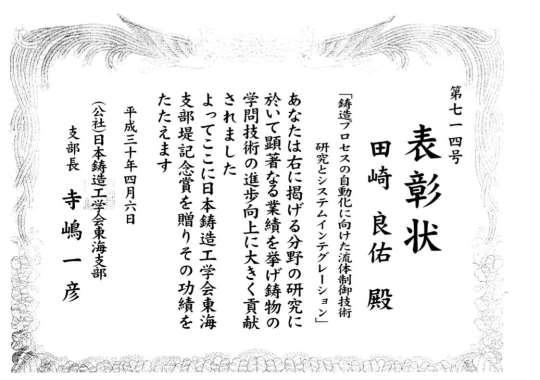 第七一四号
表彰状
田崎良佑 殿
「鋳造プロセスの自動化に向けた流体制御技術
研究とシステムインテグレーション」
あなたは右に掲げる分野の研究に
於いて顕著なる業績を挙げ鋳物の
学問技術の進歩向上に大きく貢献
されました
よってここに日本鋳造工学会東海
支部堤記念賞を贈りその功績を
たたえます
平成三十年四月六日
(公社)日本鋳造工学会東海支部
支部長 寺嶋一彦